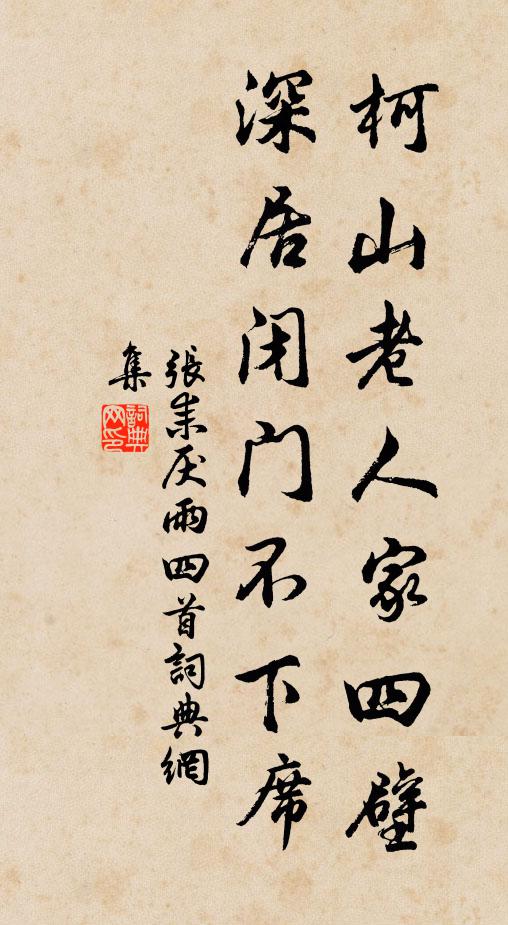 柯山老人家四壁
深居闭门不下席
張耒厌雨四首詞典網
集
詞典
网印